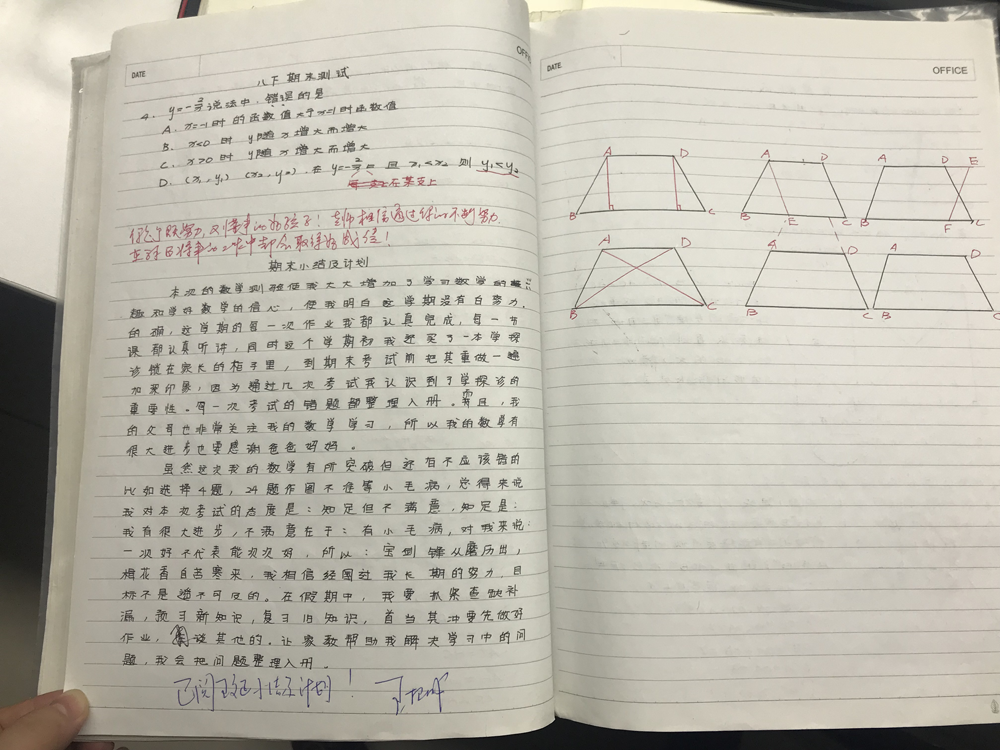 DATE
OFFICE
八下期末测试
4. y=-2/x 说法中,错误的是
A. x=-1时的函数值大于x=1时函数值
B. x<0时 y随x增大而增大
C. x>0时 y随x增大而增大
D. (x₁,y₁) (x₂,y₂) 在y=-2/x上 且x₁<x₂ 则y₁<y₂
不在某支上
你是个既努力,又懂事的好孩子!老师相信通过你的不断努力
在对日将来的 中都会取得好成绩!
期末小结及计划
本次的数学测验使我大大增加了学习数学的兴
趣和学好数学的信心,使我明白这学期没有白努力.
的确,这学期的每一次作业我都认真完成,每一节
课都认真听讲,同时这个学期初我还买了一本学探
诊锁在家长的柜子里,到期末考试前把其重做一遍
加深印象,因为通过几次考试我认识到了学探诊的
重要性。每一次考试的错题都整理入册。而且,我
的父母也非常关注我的数学学习,所以我的数学有
很大进步也要感谢爸爸妈妈。
虽然这次我的数学有所突破但还有不应该错的
比如选择4题,24题作图不准等小毛病,总得来说
我对本次考试的态度是:知足但不满意,知足是:
我有很大进步,不满意在于:有小毛病,对我来说:
一次好不代表能次次好,所以:宝剑锋从磨历出,
梅花香自苦寒来,我相信经过我长期的努力,目
标不是遥不可及的。在假期中,我要抓紧查缺补
漏,预习新知识,复习旧知识,首当其冲要先做好
作业,再谈其他的.让家教帮助我解决学习中的问
题,我会把问题整理入册.
已阅 小结及计划!
DATE
OFFICE
A D
B C
A D
B E C
A D E
B F C
A D
B C
A D
B C
A D
B C